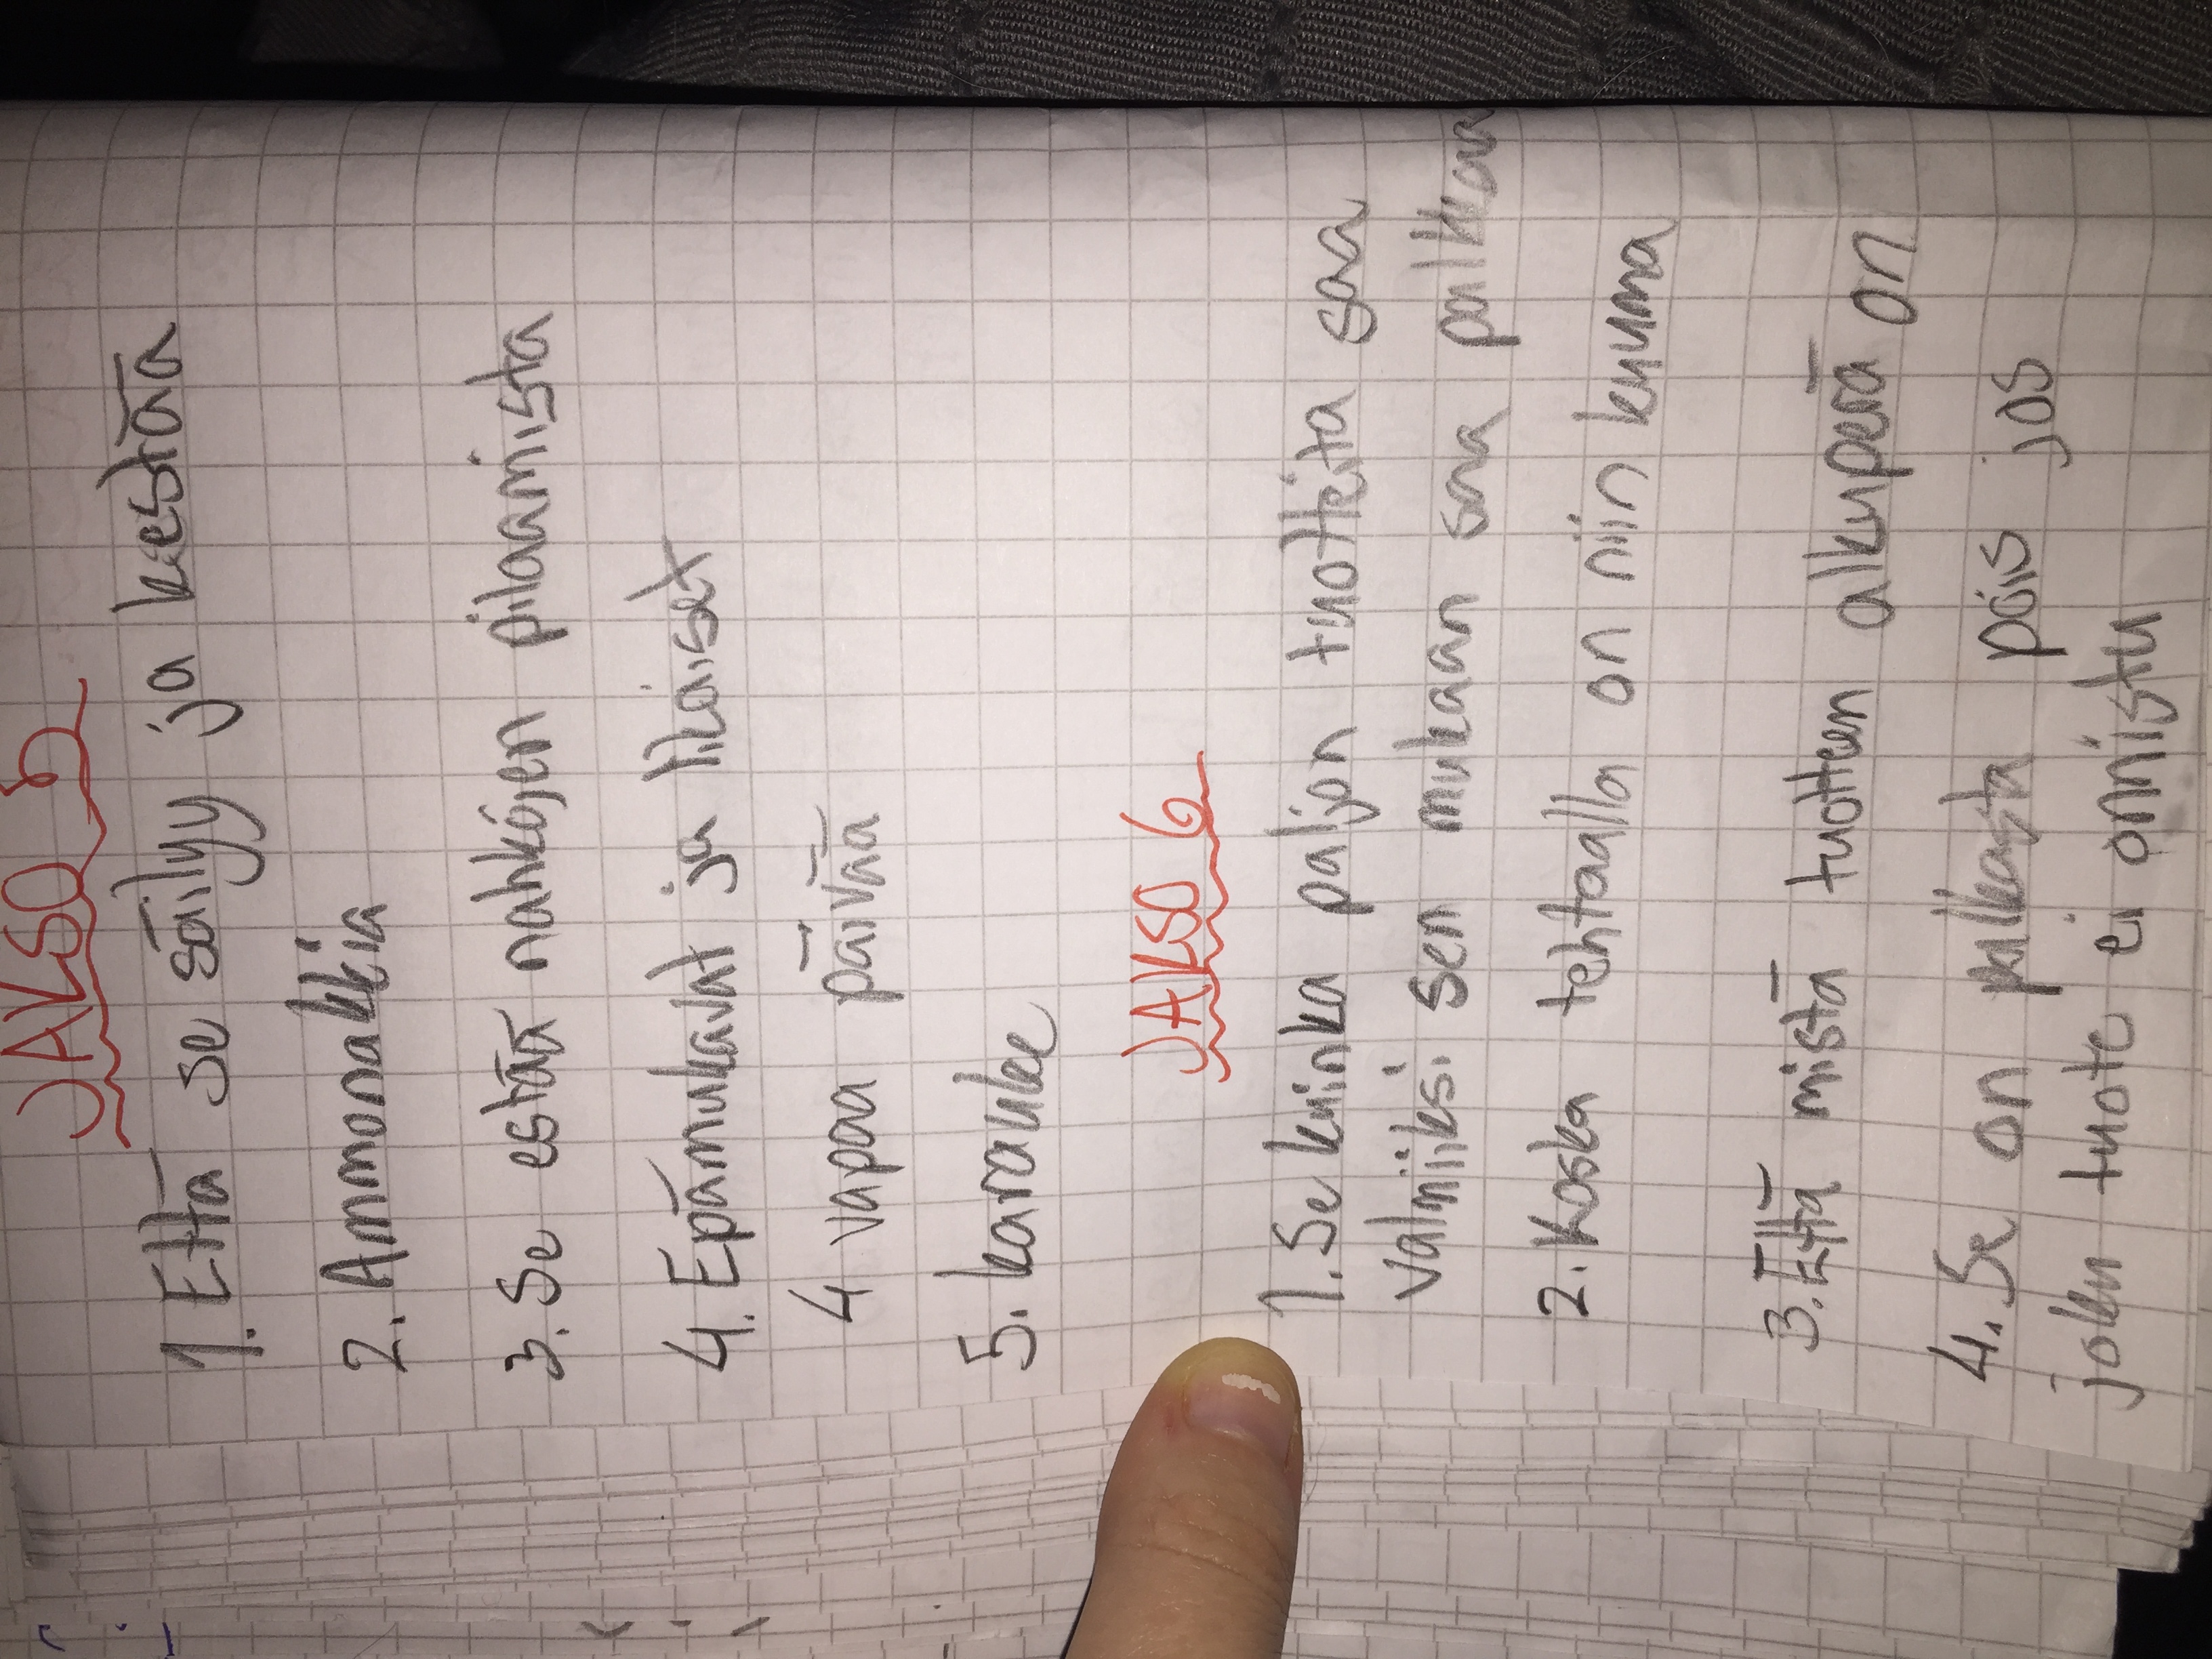 JAKSO 5
1. Että se säilyy ja kestää
2. Ammonakkia
3. Se estää nahkojen pilaamista
4. Epämukavat ja likaiset
4 vapaa päivää
5. karaoke
JAKSO 6
1. Se kuinka paljon tuotteita saa
valmiiksi sen mukaan saa palkkaa
2. Koska tehtaalla on niin kuuma
3. Että mistä tuotteen alkuperä on
4. Se on palkasta pois jos
joku tuote ei onnistu